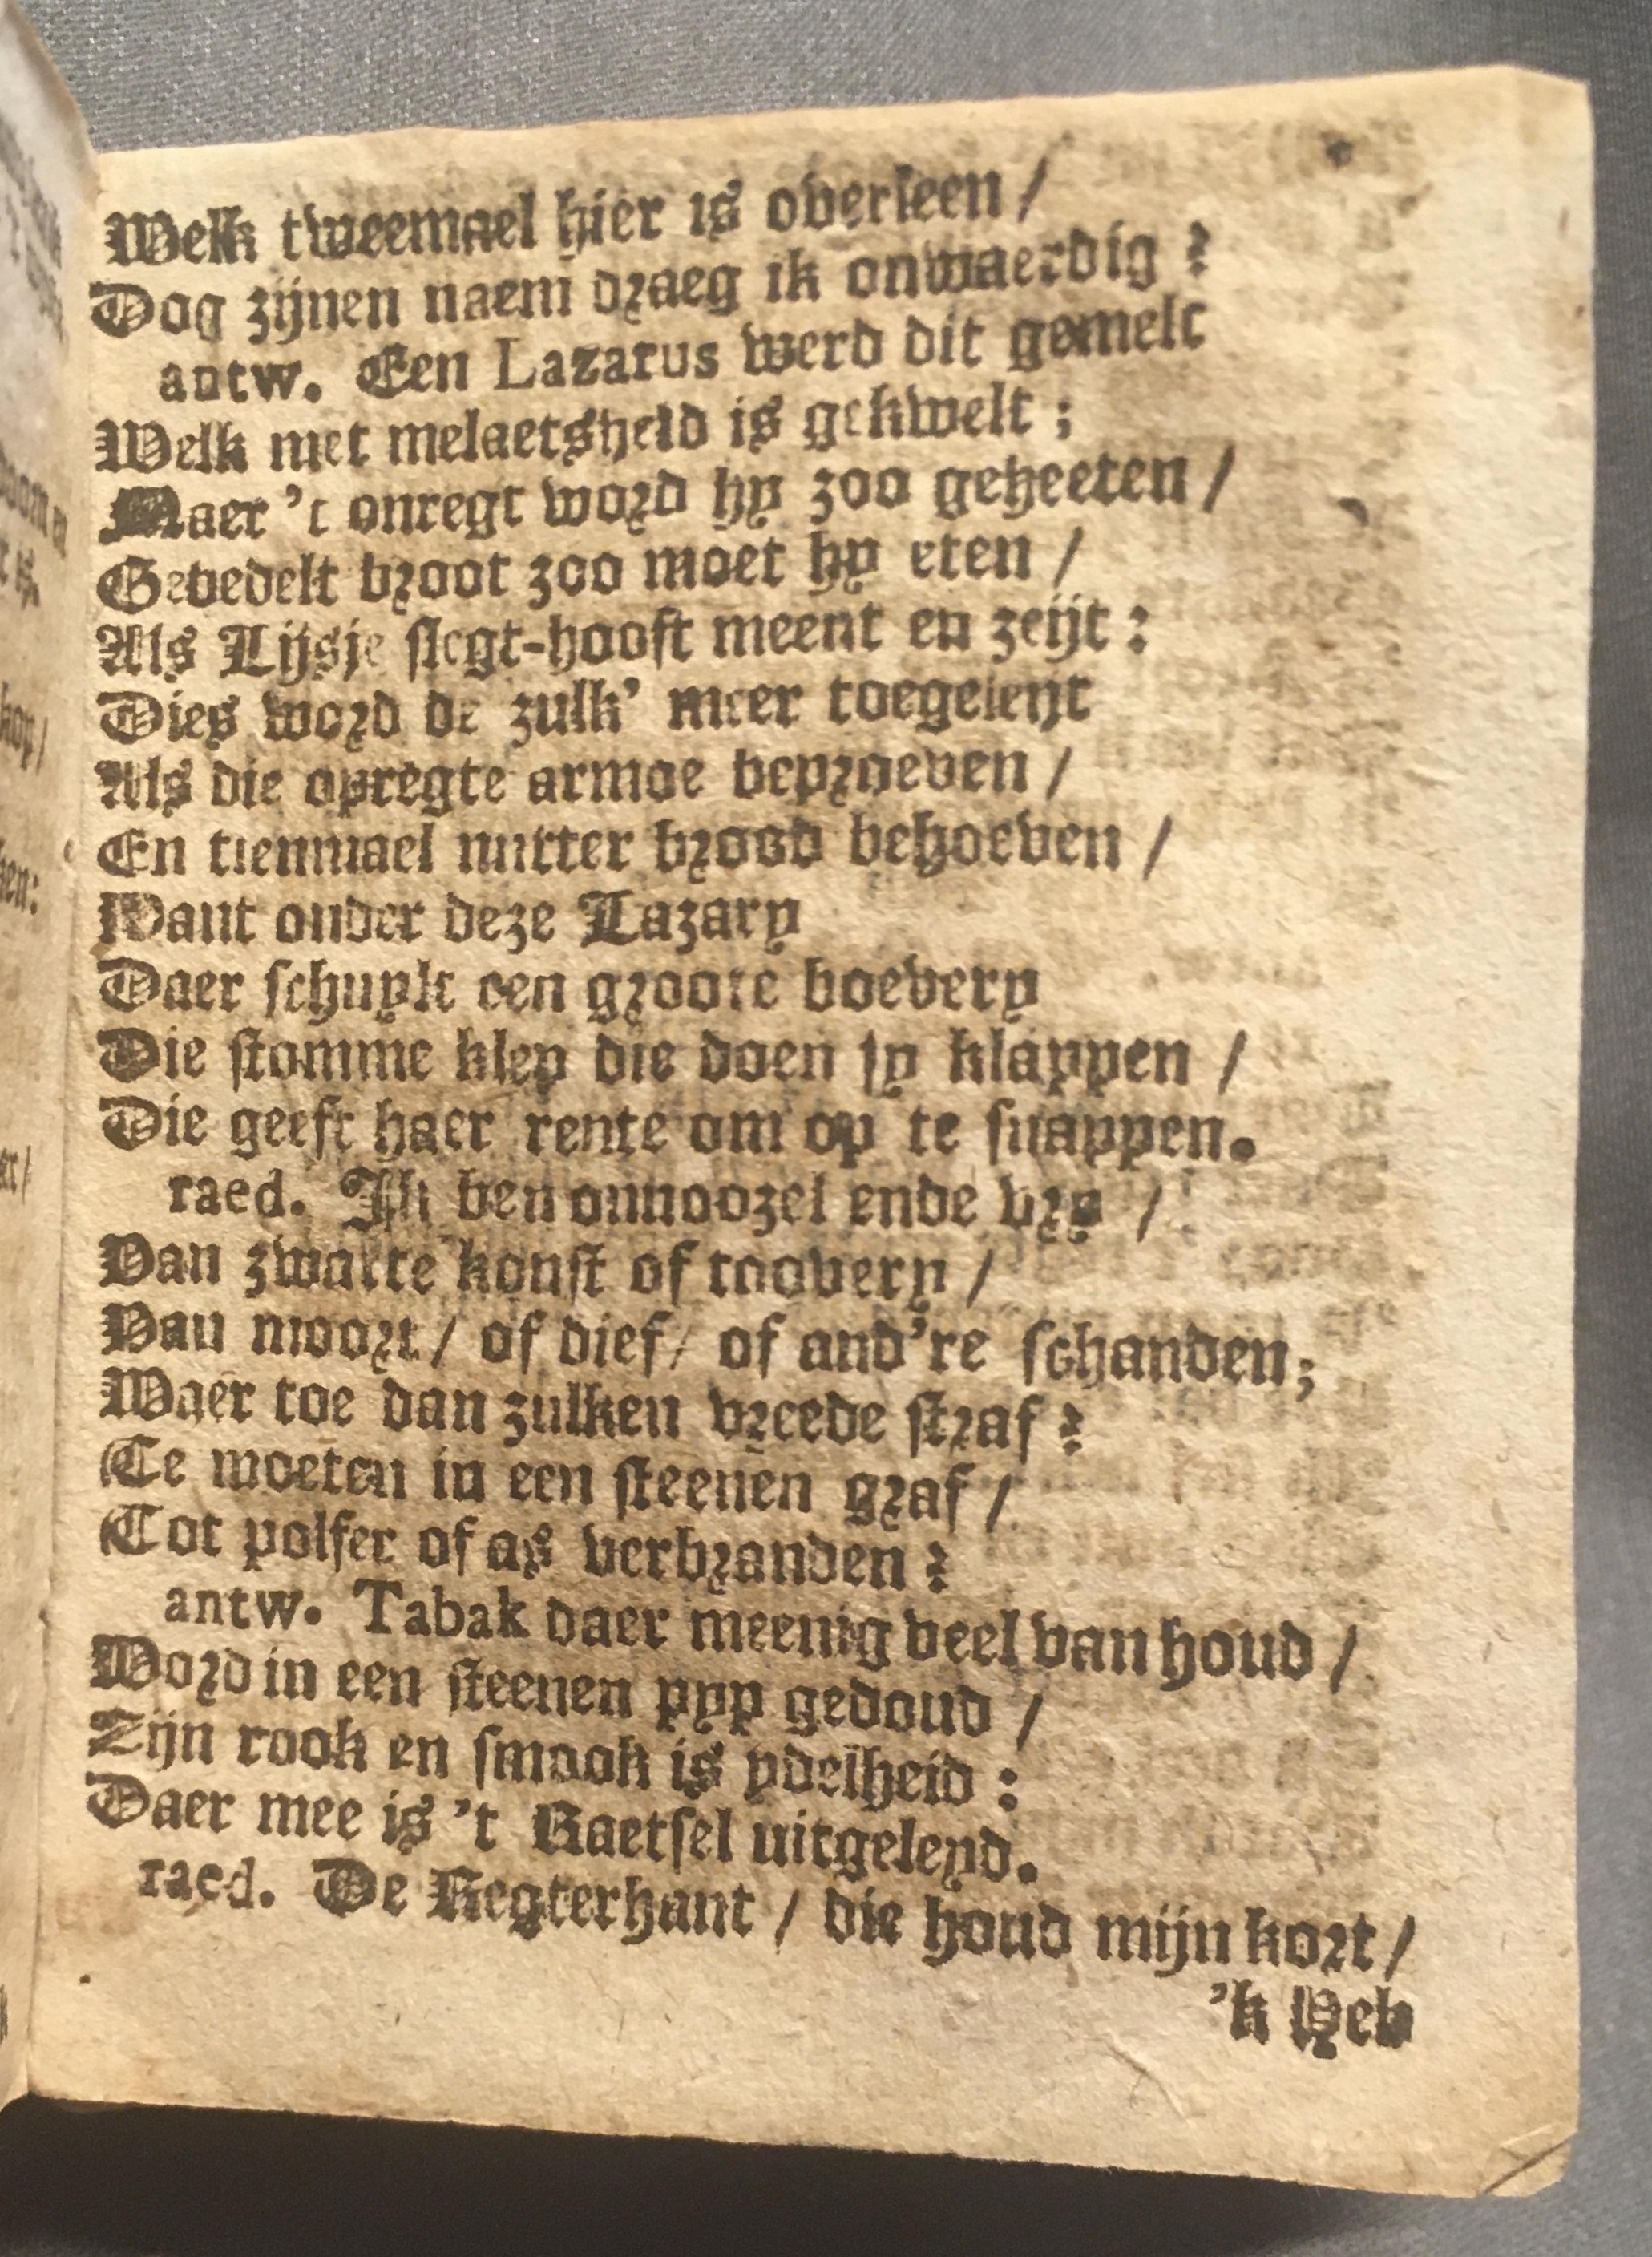 Welk tweemael hier is overleen /
Dog zijnen naem draeg ik onwaerdig ?
antw. Een Lazarus werd dit gemelt
Welk met melaetsheid is gekwelt ;
Maer 't onregt word hy zoo geheeten /
Gebedelt broot zoo moet hy eten /
Als Lijsje slegt-hooft meent en zeijt :
Dies word de zulk' meer toegeleyt
Als die opregte armoe beproeven /
En tienmael nutter brood behoeven /
Want onder deze Lazary
Daer schuylt een groote boevery
Die stomme klep die doen sy klappen /
Die geeft haer rente om op te snappen.
raed. Ik ben onnoozel ende vry /
Van zwarte konst of toovery /
Van moort / of dief / of and're schanden;
Waer toe dan zulken vreede straf ?
Te moeten in een steenen graf /
Tot polfer of as verbranden ?
antw. Tabak daer meenig veel van houd /
Word in een steenen pyp gedoud /
Zijn rook en smook is ydelheid :
Daer mee is 't Raetsel uitgeleyd.
raed. De Regterhant / die houd mijn kort /
'k Heb